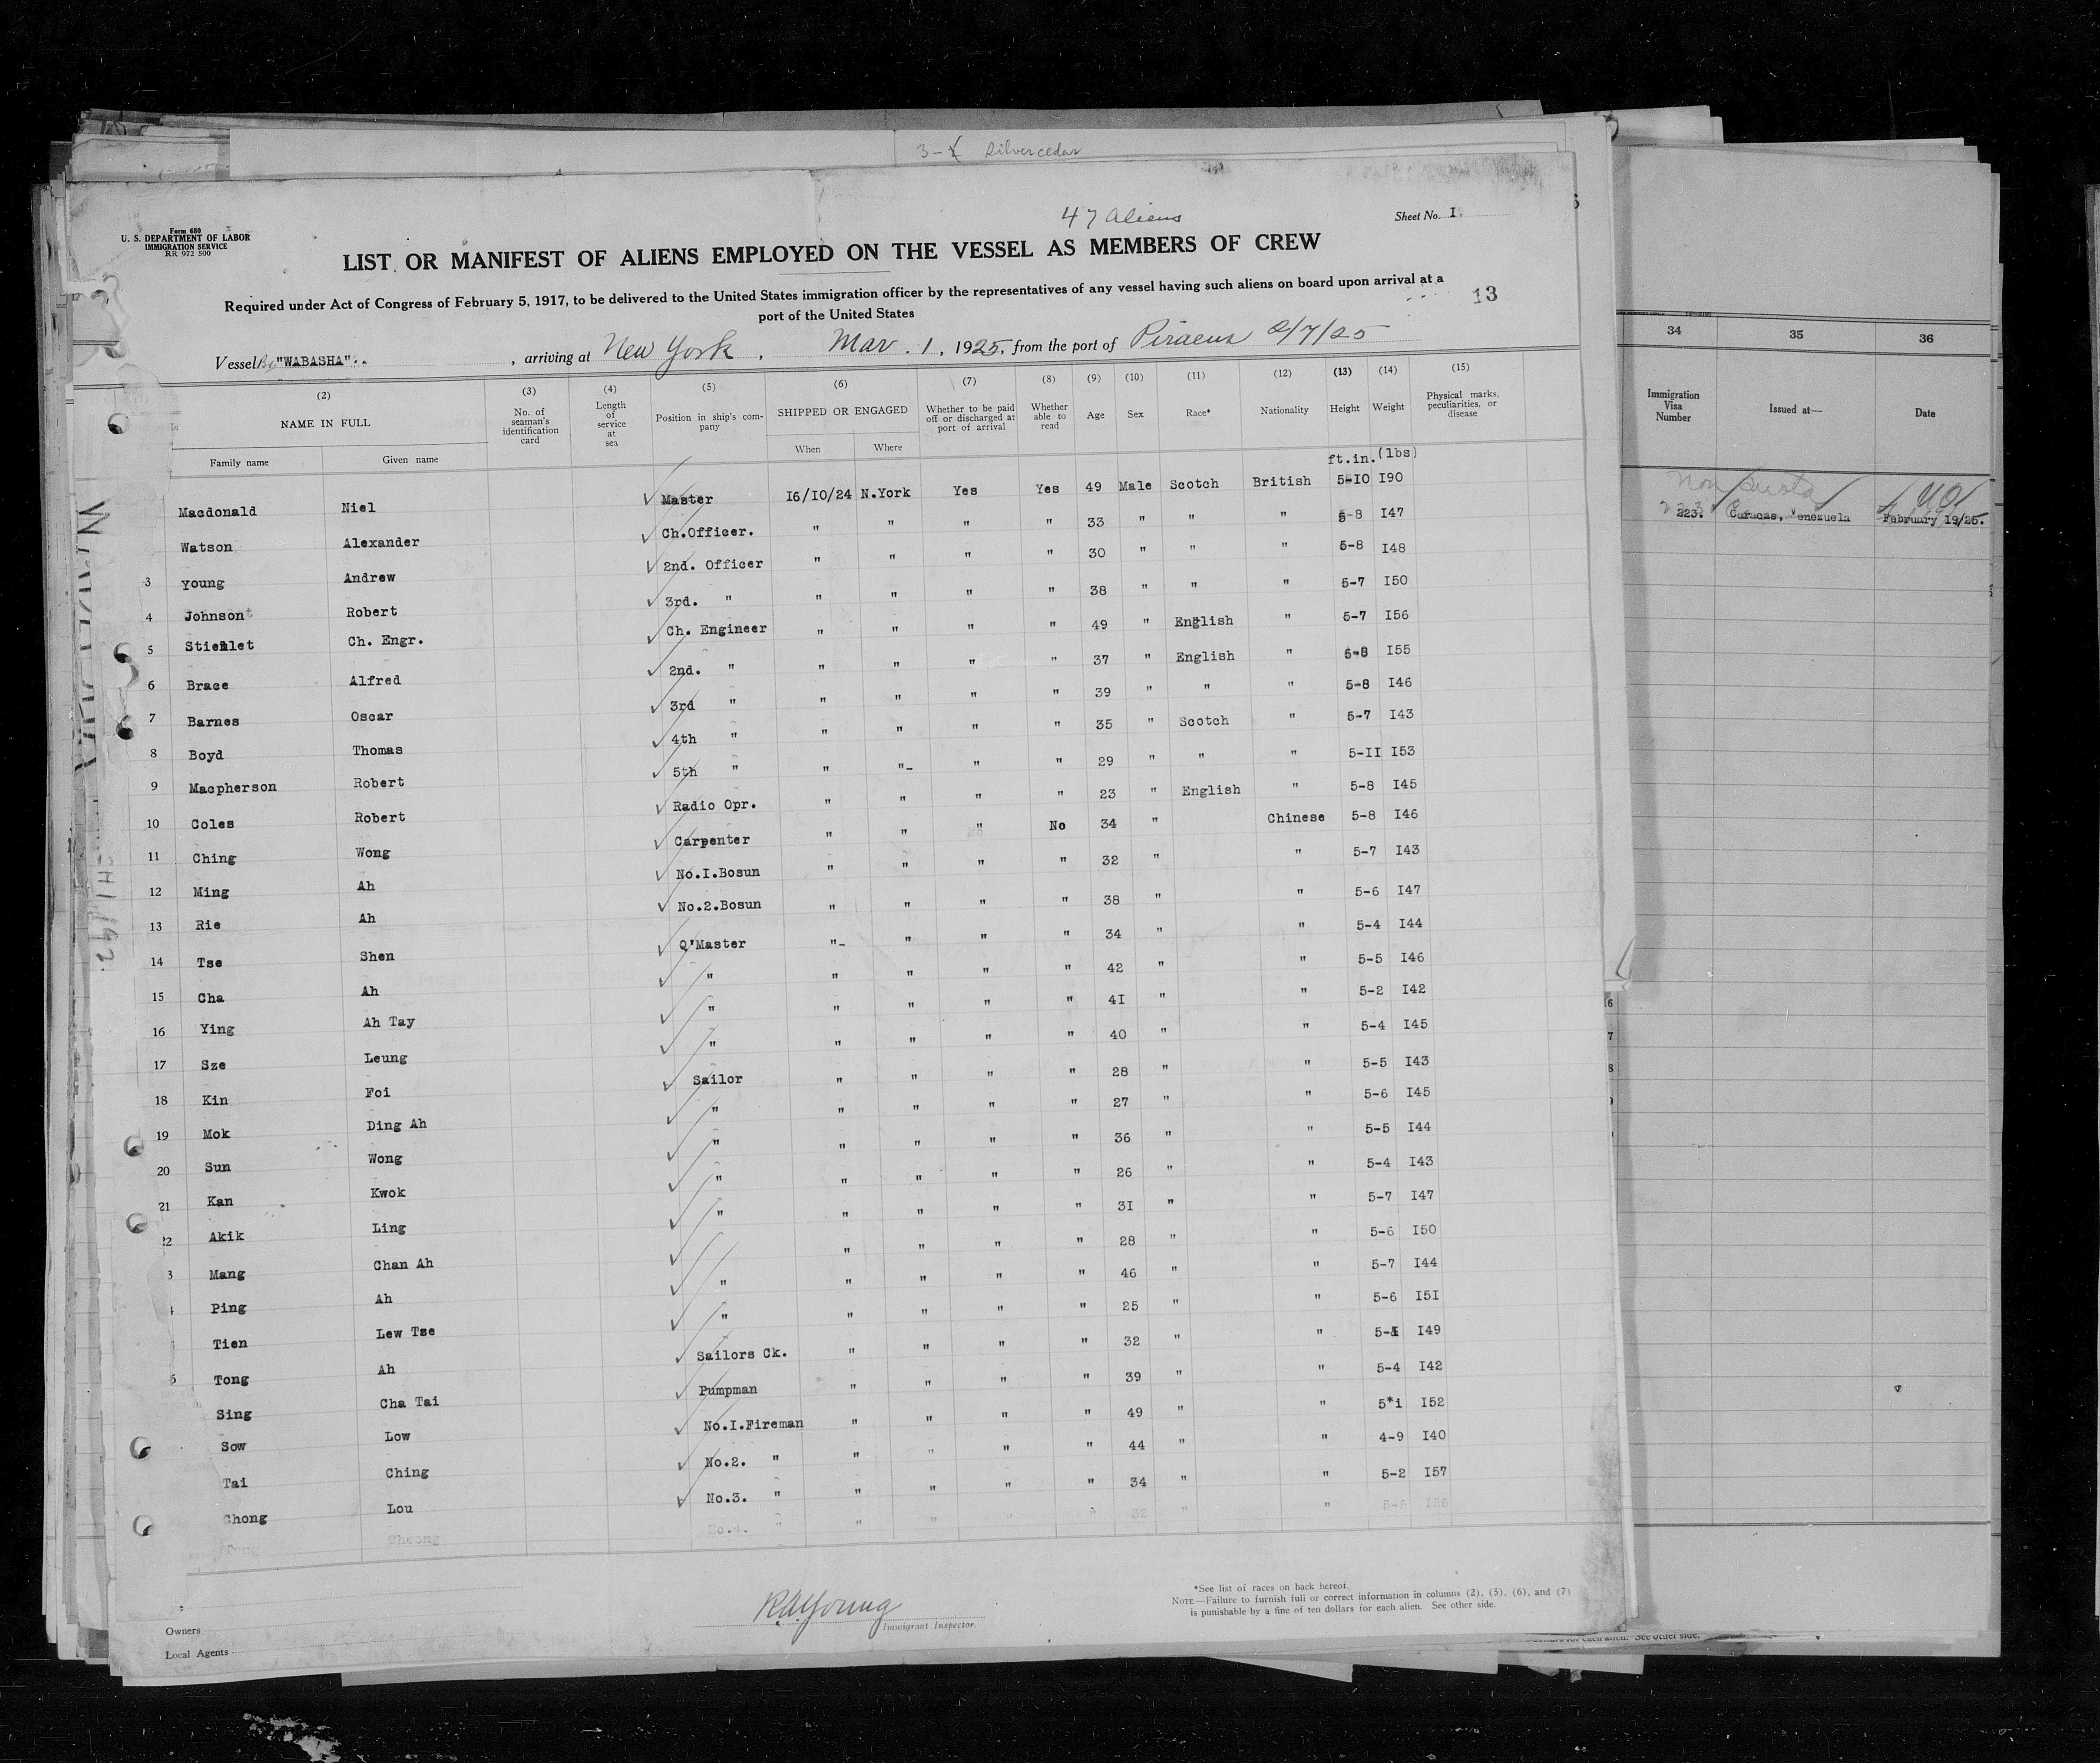 3-X Silvercedar
47 Aliens
Sheet No. I
Form 680
U. S. DEPARTMENT OF LABOR
IMMIGRATION SERVICE
RR 972 500
LIST OR MANIFEST OF ALIENS EMPLOYED ON THE VESSEL AS MEMBERS OF CREW
Required under Act of Congress of February 5, 1917, to be delivered to the United States immigration officer by the representatives of any vessel having such aliens on board upon arrival at a
port of the United States
13
Vessel "WABASHA", arriving at New York, Mar. 1, 1925, from the port of Piraeus 2/7/25
(2) (3) (4) (5) (6) (7) (8) (9) (10) (11) (12) (13) (14) (15)
NAME IN FULL No. of seaman's identification card Length of service at sea Position in ship's company SHIPPED OR ENGAGED Whether to be paid off or discharged at port of arrival Whether able to read Age Sex Race* Nationality Height Weight Physical marks, peculiarities, or disease
Family name Given name When Where
ft.in. (lbs)
Macdonald Niel Master 16/10/24 N.York Yes Yes 49 Male Scotch British 5-10 190
Watson Alexander Ch.Officer. " " " " 33 " " " 5-8 147
3 Young Andrew 2nd. Officer " " " " 30 " " " 5-8 148
4 Johnson Robert 3rd. " " " " " 38 " " " 5-7 150
5 Ch. Engr. Ch. Engineer " " " " 49 " English " 5-7 156
6 Brace Alfred 2nd. " " " " " 37 " English " 5-8 155
7 Barnes Oscar 3rd " " " " " 39 " " " 5-8 146
8 Boyd Thomas 4th " " " " " 35 " Scotch " 5-7 143
9 Macpherson Robert 5th " " "- " " 29 " " " 5-11 153
10 Coles Robert Radio Opr. " " " " 23 " English " 5-8 145
11 Ching Wong Carpenter " " " No 34 " Chinese 5-8 146
12 Ming Ah No.I.Bosun " " " " 32 " " 5-7 143
13 Rie Ah No.2.Bosun " " " " 38 " " 5-6 147
14 Tse Shen Q'Master "- " " " 34 " " 5-4 144
15 Cha Ah " " " " " 42 " " 5-5 146
16 Ying Ah Tay " " " " " 41 " " 5-2 142
17 Sze Leung " " " " " 40 " " 5-4 145
18 Kin Foi Sailor " " " " 28 " " 5-5 143
19 Mok Ding Ah " " " " " 27 " " 5-6 145
20 Sun Wong " " " " " 36 " " 5-5 144
21 Kan Kwok " " " " " 26 " " 5-4 143
22 Akik Ling " " " " " 31 " " 5-7 147
3 Mang Chan Ah " " " " 28 " " 5-6 150
Ping Ah " " " " " 46 " " 5-7 144
Tien Lew Tse " " " " " 25 " " 5-6 151
6 Tong Ah Sailors Ck. " " " " 32 " " 149
Sing Cha Tai Pumpman " " " " 39 " " 5-4 142
Sow Low No.I.Fireman " " " " 49 " " 5*1 152
Tai Ching No.2. " " " " " 44 " " 4-9 140
Chong Lou No.3. " " " " " 34 " " 5-2 157
Cheong No.4. " " " " " " "
R.A. Young
Immigrant Inspector.
Owners
Local Agents
*See list of races on back hereof.
NOTE—Failure to furnish full or correct information in columns (2), (5), (6), and (7)
is punishable by a fine of ten dollars for each alien. See other side.
34 35 36
Immigration Visa Number Issued at— Date
223. Caracas, Venezuela February 19/25.